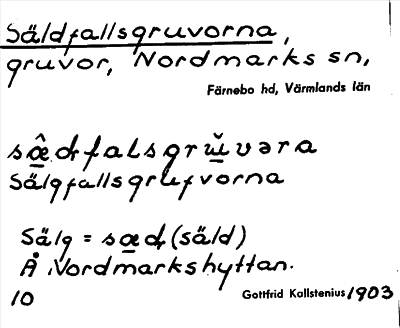 Säldfallsgruvorna,
gruvor, Nordmarks sn,
Färnebo hd, Värmlands län
Sälgfallsgrufvorna
Sälg = (säld)
Å Nordmarkshyttan.
10 Gottfrid Kallstenius 1903